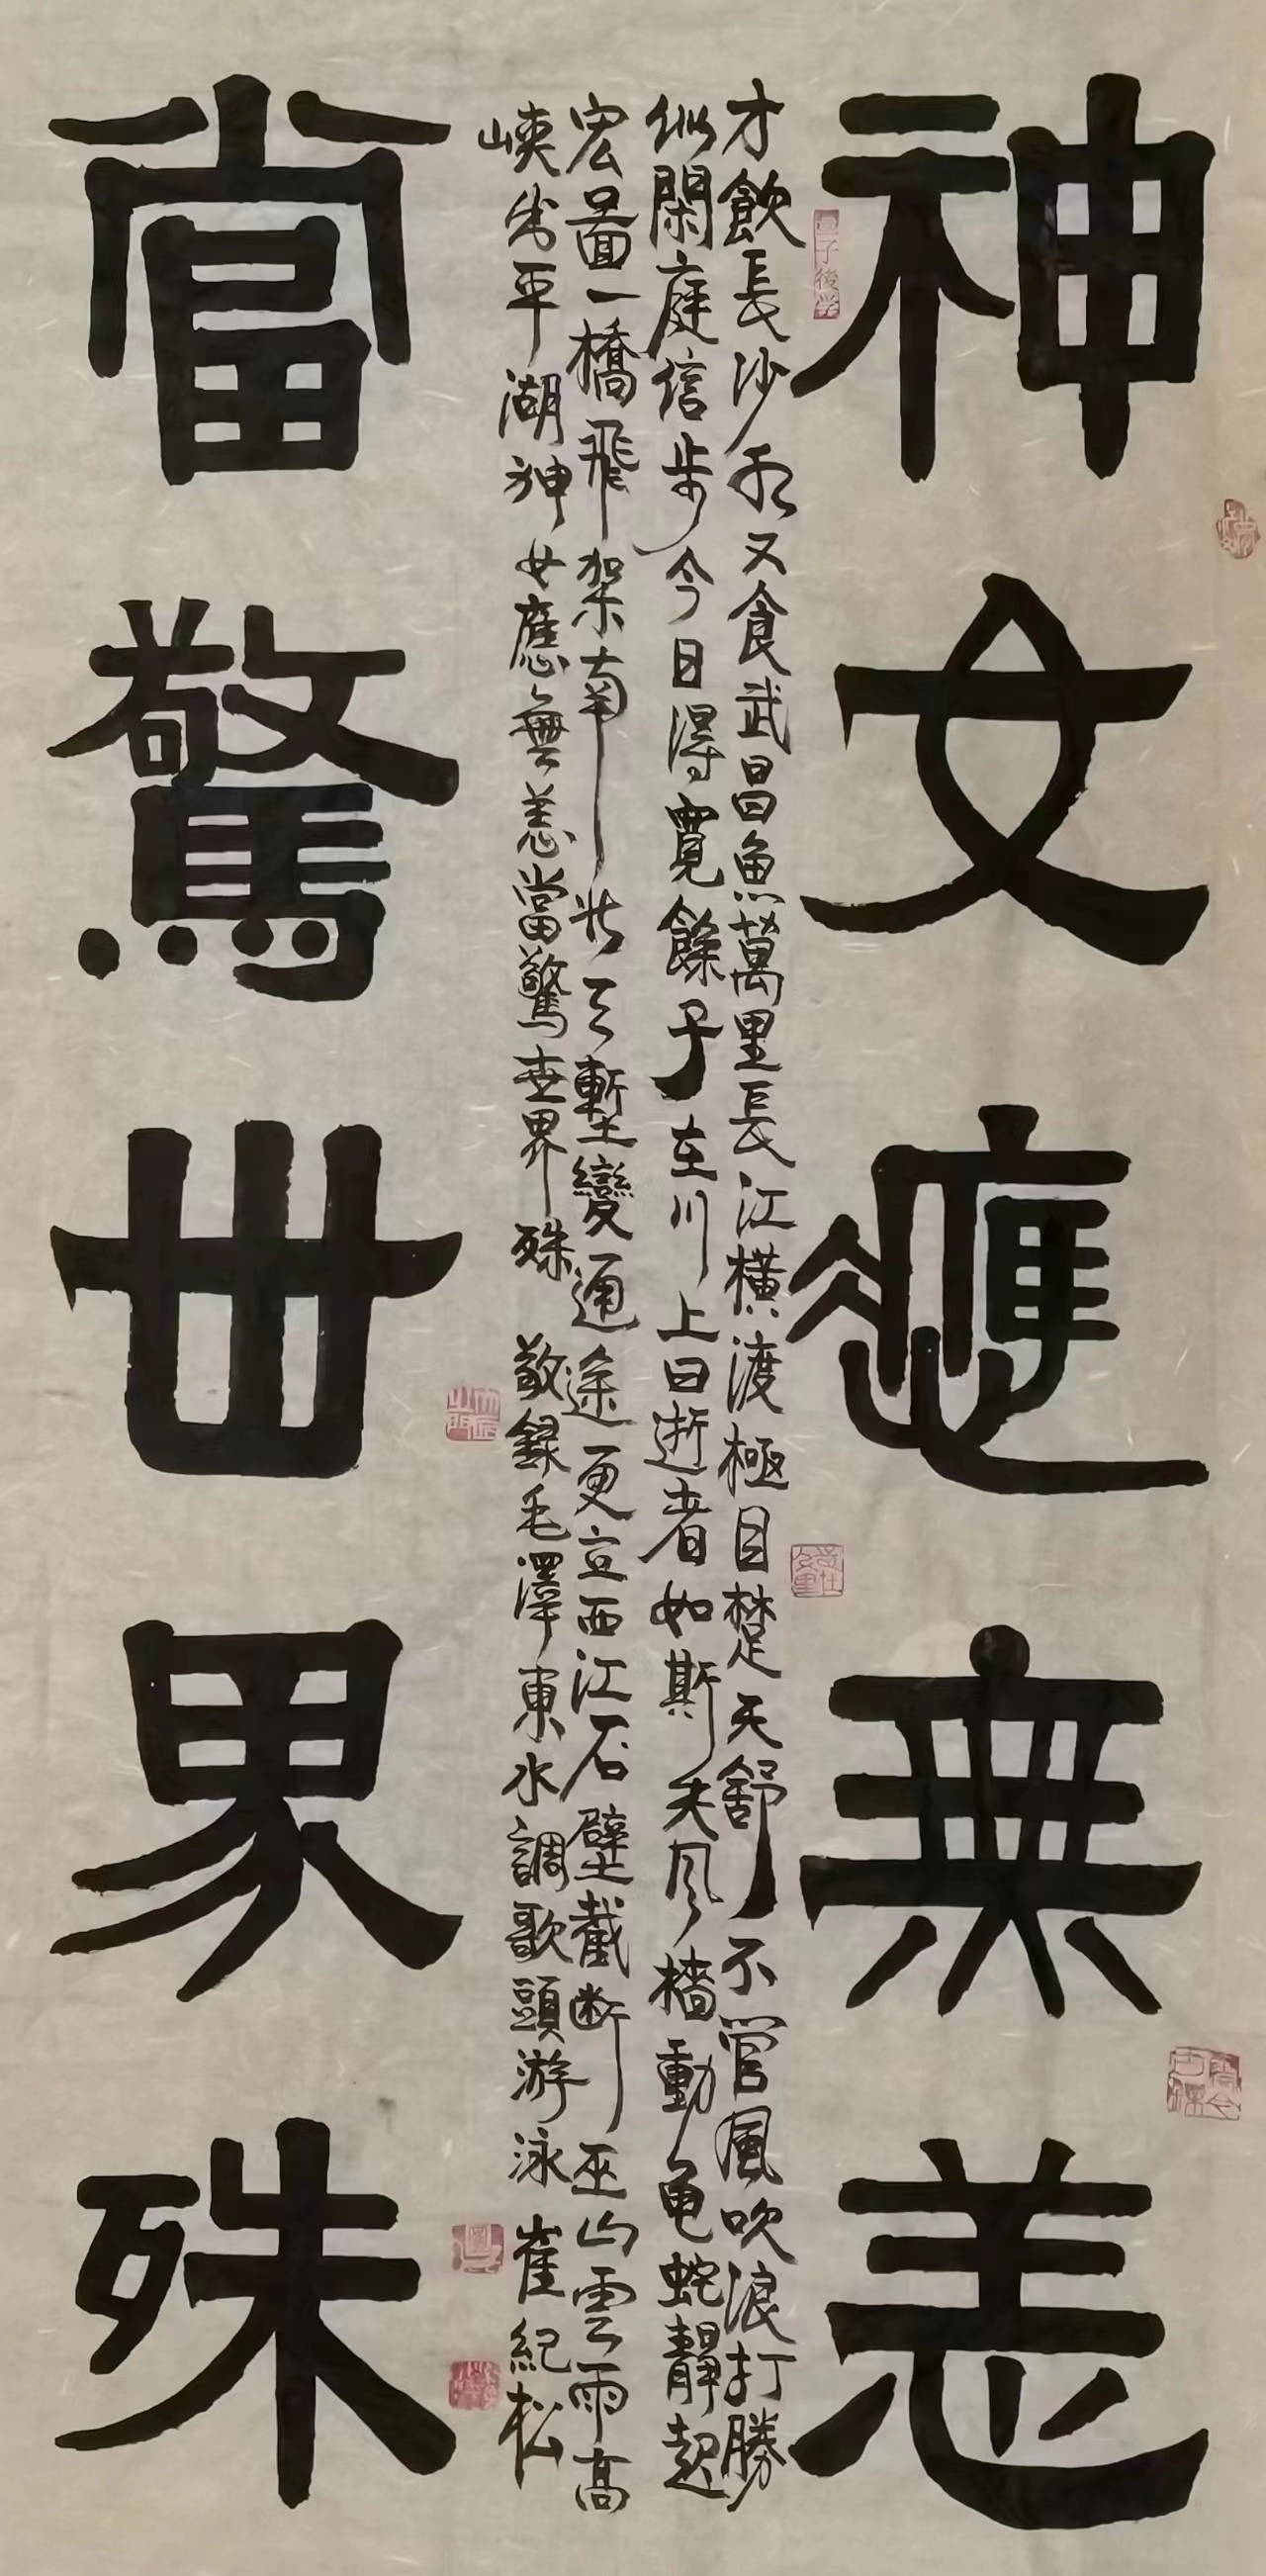 神女應無恙
孟子後学
才飲長沙水又食武昌魚萬里長江橫渡極目楚天舒不管風吹浪打勝
似閑庭信步今日得寬餘子在川上曰逝者如斯夫風檣動龜蛇靜起
宏圖一橋飛架南北天塹變通途更立西江石壁截斷巫山雲雨高
峽出平湖神女應無恙當驚世界殊 敬錄毛澤東水調歌頭游泳 崔紀松
當驚世界殊